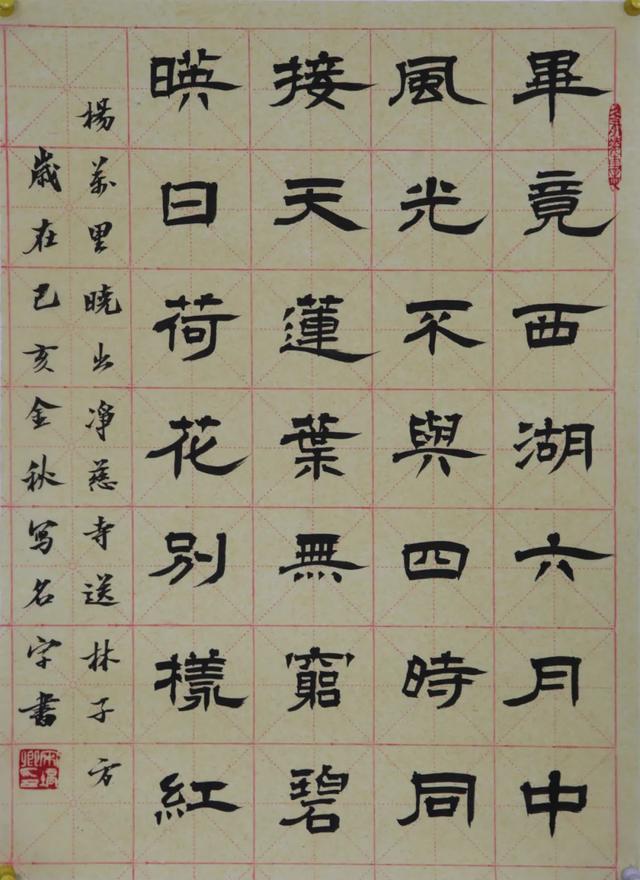 畢竟西湖六月中
風光不與四時同
接天蓮葉無窮碧
暎日荷花別樣紅
楊萬里曉出淨慈寺送林子方
歲在己亥金秋写名字書